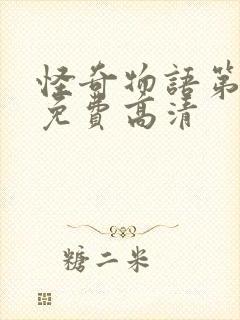 怪奇物語第
免費高清
糖二米